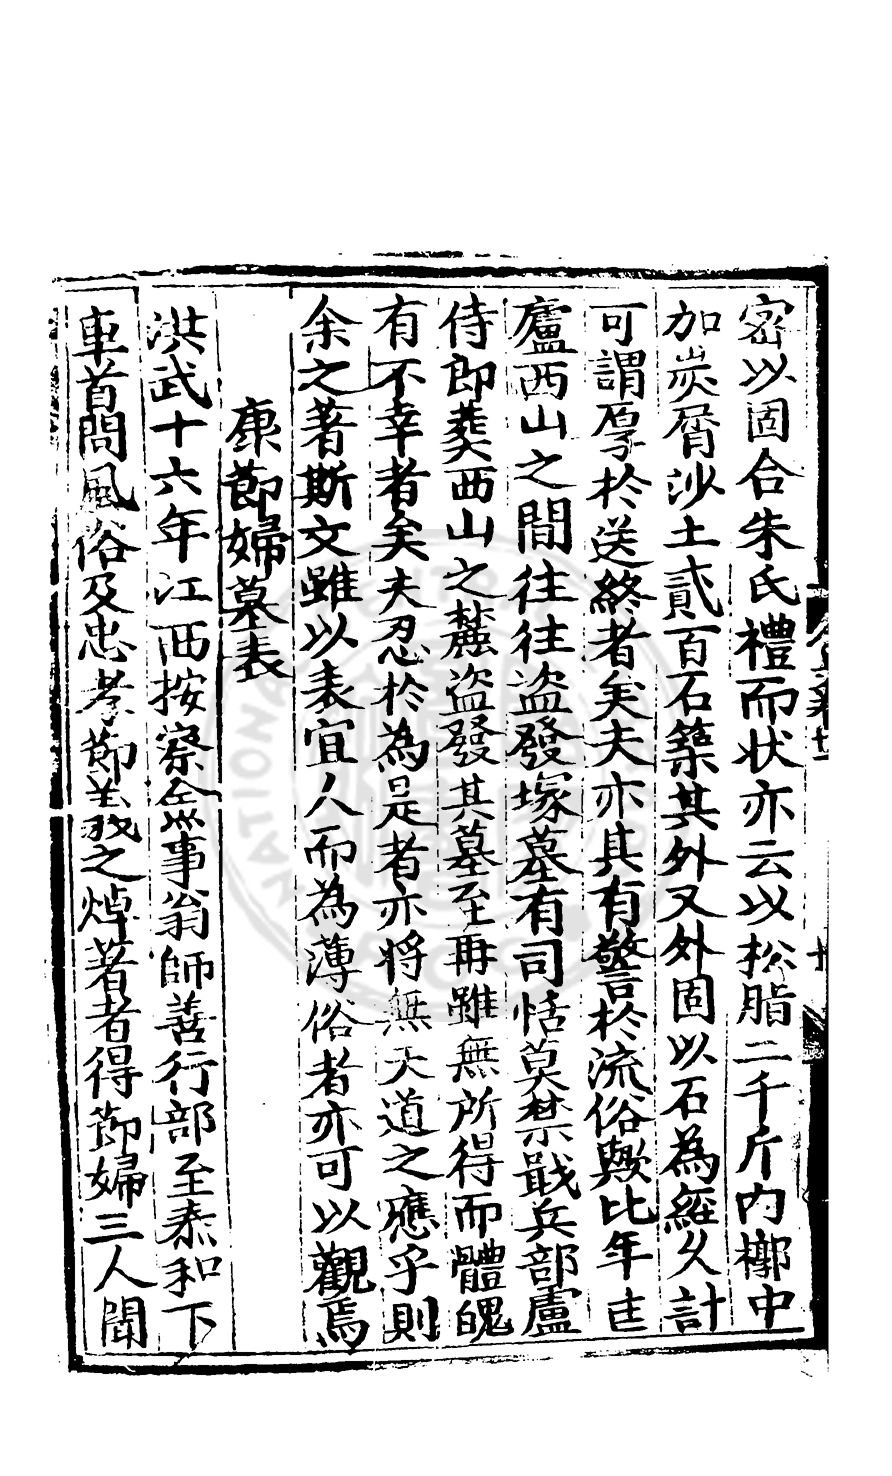 密以固合朱氏禮而状亦云以松脂二千斤内槨中
加炭屑沙土貳百石築其外又外固以石為經久計
可謂厚於送終者矣夫亦具有警於流俗歟比年吉
廬西山之間往往盗發塚墓有司恬莫禁戢兵部盧
侍郎葬西山之麓盗發其墓至再雖無所得而體魄
有不幸者矣夫忍於為是者亦将無天道之應乎則
余之著斯文雖以表宜人而為薄俗者亦可以觀焉
康節婦墓表
洪武十六年江西按察僉事翁師善行部至泰和下
車首問風俗及忠孝節義之焯著者得節婦三人聞
NATIONAL